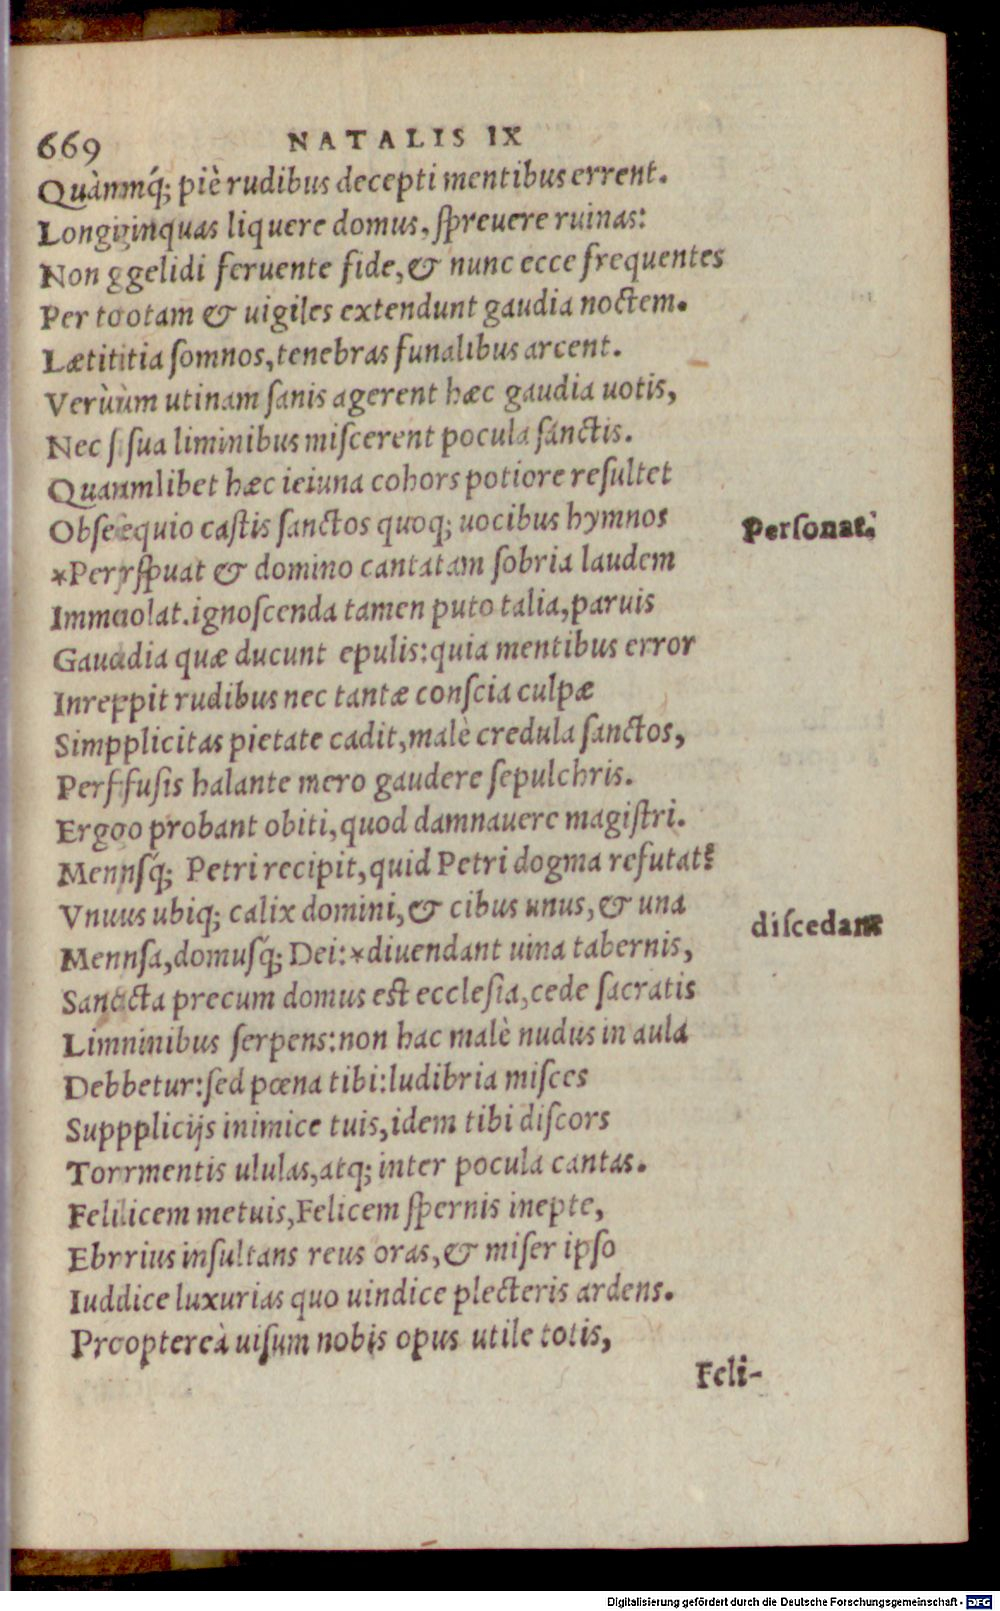 669 NATALIS IX
Quànmq́; piè rudibus decepti mentibus errent.
Longiginquas liquere domus, ſpreuere ruinas:
Non ggelidi feruente fide, & nunc ecce frequentes
Per tootam & uigiles extendunt gaudia noctem.
Lætititia ſomnos, tenebras funalibus arcent.
Verùùm utinam ſanis agerent hæc gaudia uotis,
Nec ſ ſua liminibus miſcerent pocula ſanctis.
Quammlibet hæc ieiuna cohors potiore reſultet
Obſeequio caſtis ſanctos quoq; uocibus hymnos
Perſonat.
*Perrſpuat & domino cantatam ſobria laudem
Immoolat. ignoſcenda tamen puto talia, paruis
Gauddia quæ ducunt epulis: quia mentibus error
Inreppit rudibus nec tantæ conſcia culpæ
Simpplicitas pietate cadit, malè credula ſanctos,
Perffuſis halante mero gaudere ſepulchris.
Ergoo probant obiti, quod damnauere magiſtri.
Mennſq́; Petri recipit, quid Petri dogma refutat?
Vnuus ubiq; calix domini, & cibus unus, & una
diſcedant
Mennſa, domuſq́; Dei: *diuendant uina tabernis,
Sanccta precum domus eſt eccleſia, cede ſacratis
Limninibus ſerpens: non hac malè nudus in aula
Debbetur: ſed pœna tibi: ludibria miſces
Supppliciis inimice tuis, idem tibi diſcors
Torrmentis ululas, atq; inter pocula cantas.
Felilicem metuis, Felicem ſpernis inepte,
Ebrrius inſultans reus oras, & miſer ipſo
Iuddice luxurias quo uindice plecteris ardens.
Prooptereà uiſum nobis opus utile totis,
Feli-
Digitalisierung gefördert durch die Deutsche Forschungsgemeinschaft - DFG